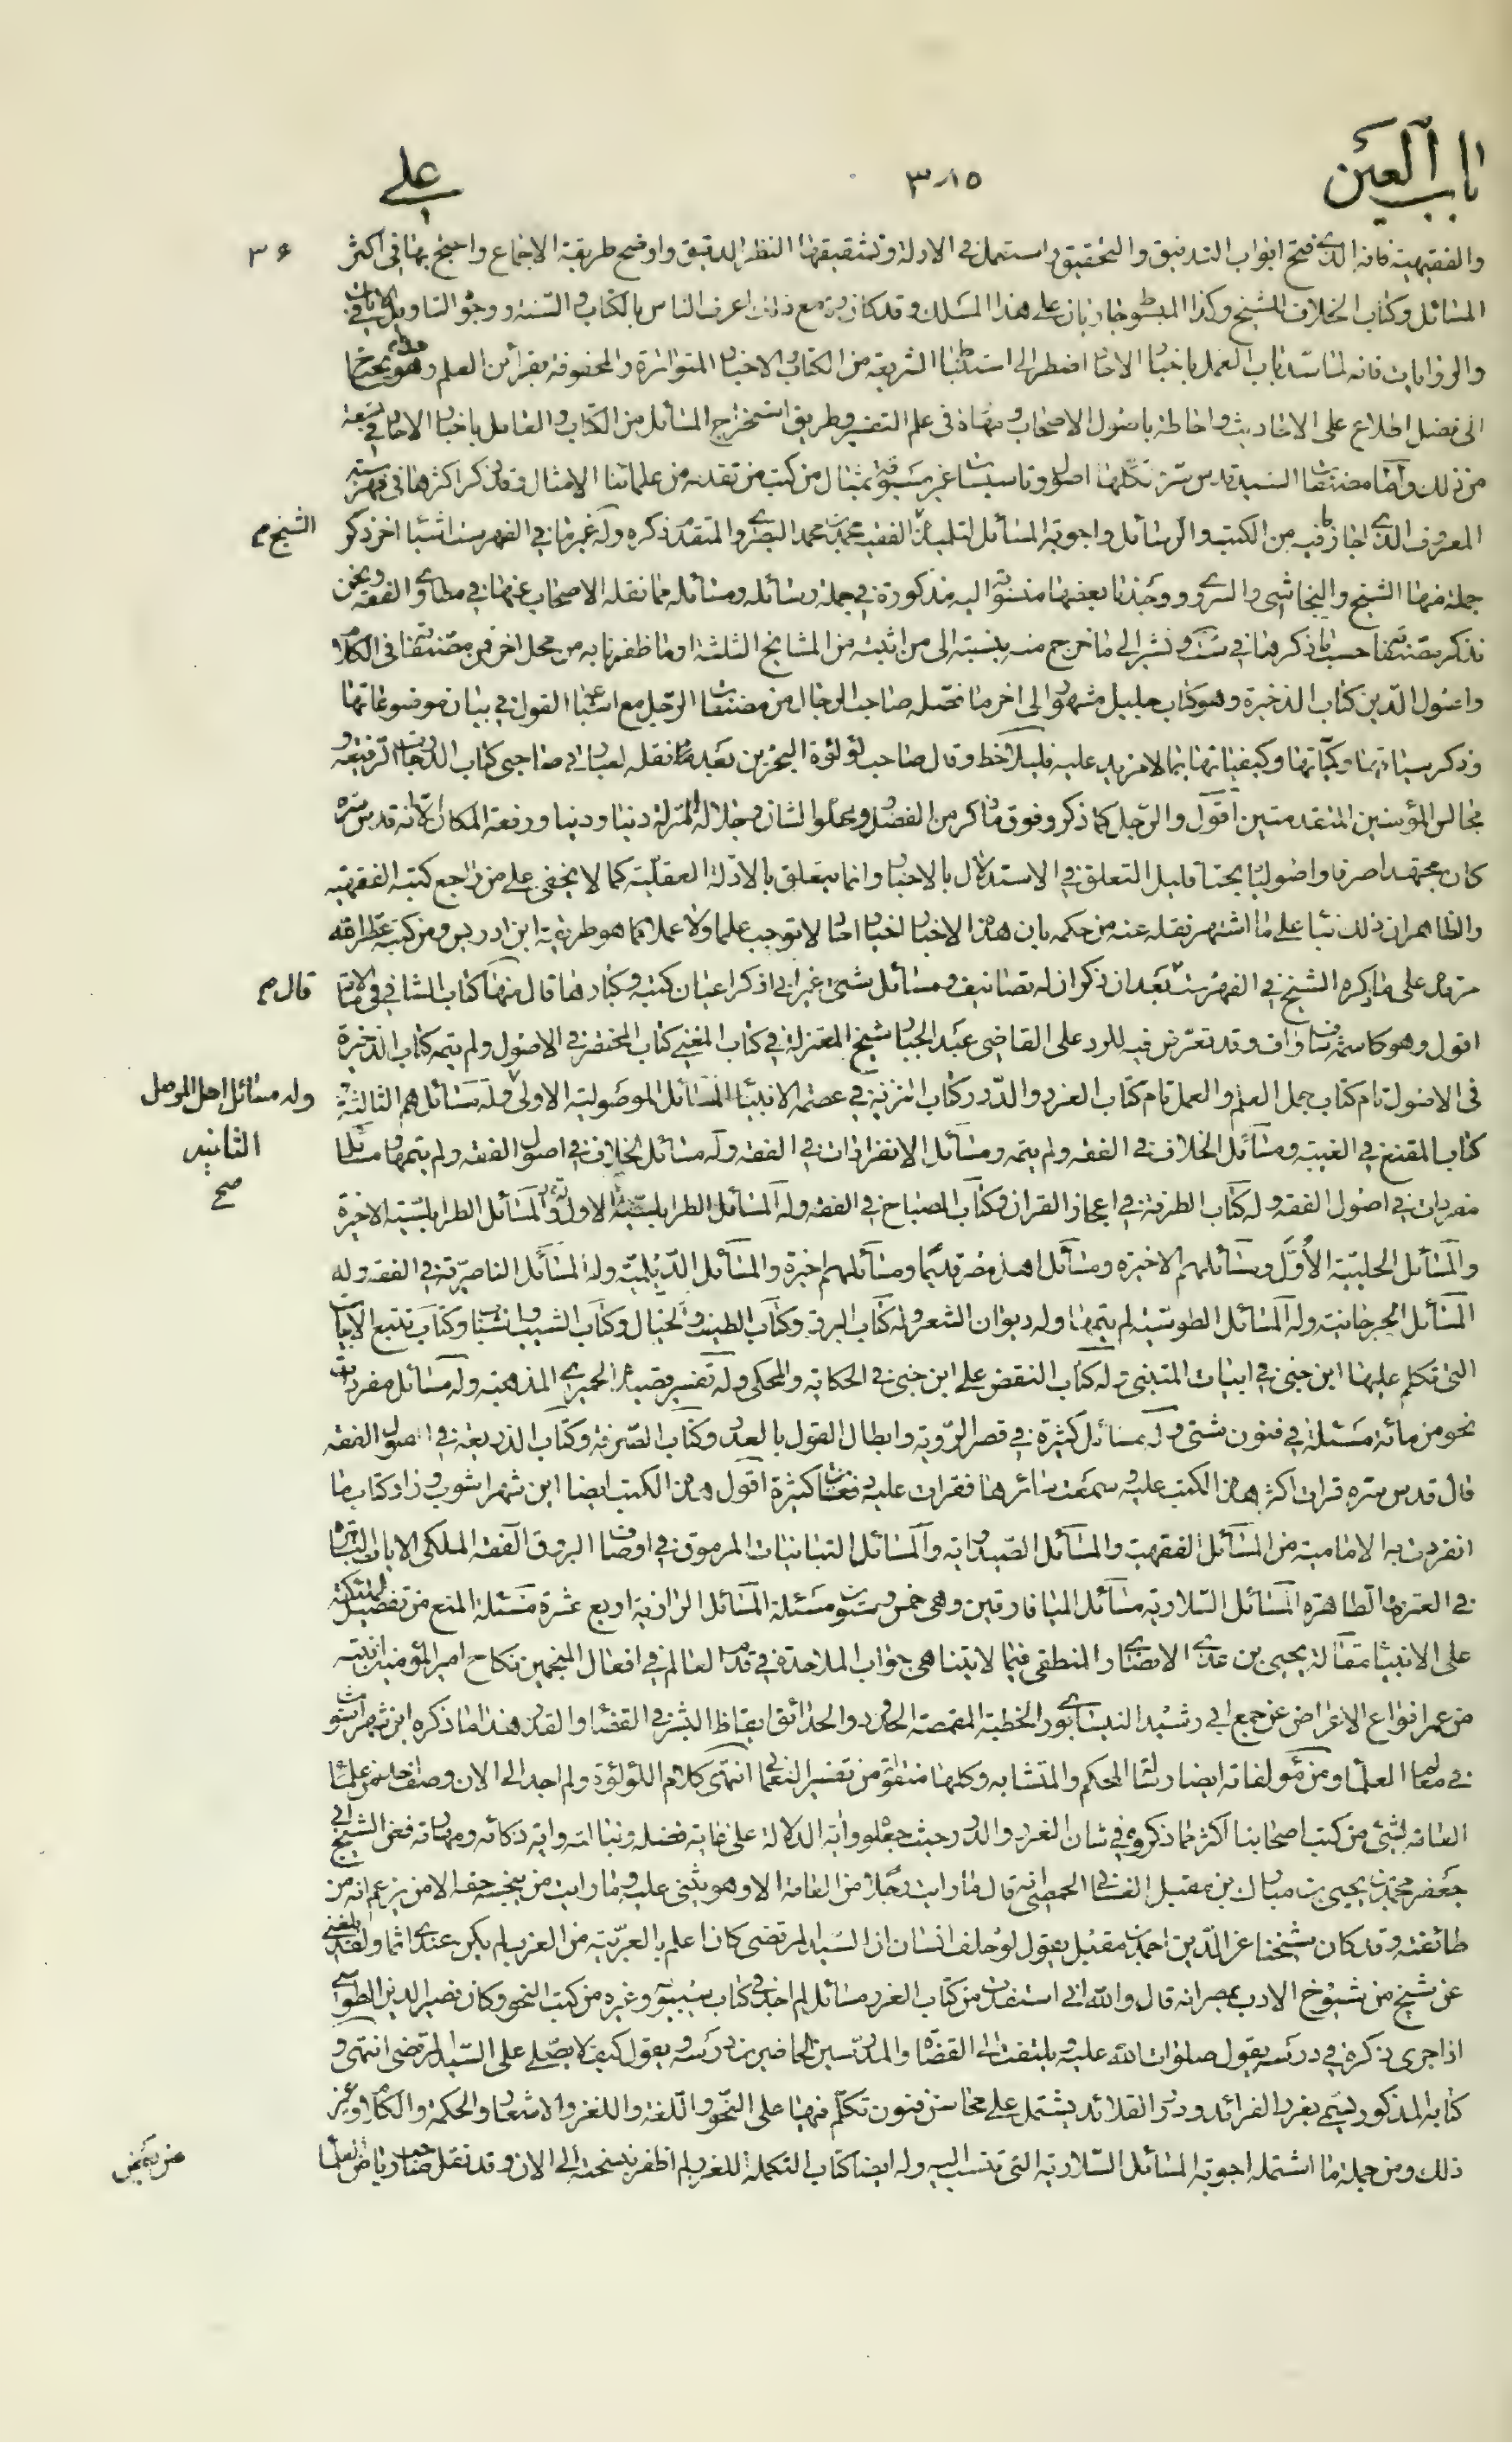 باب العين
٣٨٥
علي
٣٦
والفقهية فانه الذي فتح ابواب التدقيق والتحقيق واستعمل في الادلة وتشقيقها النظر الدقيق واوضح طريقة الاجماع واحتج بها في اكثر
المسائل وكتاب الخلاف للشيخ وكذا المبسوط جاريان على هذا المسلك وقد كان ره مع ذلك اعرف الناس بالكتاب والسنة ووجوه التاويل في الايات
والروايات فانه لما سد باب العمل باخبار الاحاد اضطر الى استنباط الشريعة من الكتاب والاخبار المتواترة والمحفوفة بقرائن العلم وهو يحتاج
الى فضل اطلاع على الاحاديث واحاطة باصول الاصحاب ومهارة في علم التفسير وطريق استخراج المسائل من الكتاب والعامل باخبار الاحاد في سعة
من ذلك واما مصنفات السيد قدس سره فكلها اصول وتاسيسات غير مسبوقة بمثال من كتب من تقدمه من علمائنا الامثال وقد ذكر اكثرها في فهرسته
المعروف الذي اجاز فيه ما من الكتب والرسائل واجوبة المسائل لتلميذه الفقيه محمد بن محمد البصروي المتقدم ذكره وله غير ما في الفهرست اشياء اخر ذكر
الشيخ م
جملة منها الشيخ والنجاشي والسروي ووجدنا بعضها منسوبة اليه مذكورة في جملة رسائله ومسائله مما نقله الاصحاب عنها في مطاوي الفقه ونحن
نذكر مصنفاته حسب ما ذكرها في ونشير الى ما خرج منه بنسبته الى من اثبته من المشايخ الثلثة او ما ظفرنا به من محل اخر فمن مصنفاته في الكلام
واصول الدين كتاب الذخيرة وهو كتاب جليل مشهور الى اخر ما فصله صاحب الرجال من مصنفات الرجل مع اشباع القول في بيان موضوعاتها
وذكر سياقاتها وكمياتها وكيفياتها بما لا مزيد عليه فليلاحظ وقال صاحب لؤلؤة البحرين بعد ما نقله لعبارتي صاحبي كتاب الدرجات الرفيعة و
مجالس المؤمنين المتقدمتين اقول والرجل كما ذكر وفوق ما ذكر من الفضل وعلو الشان وجلالة المنزلة دنيا ودينا ورفعة المكان الا انه قدس سره
كان مجتهدا صرفا واصوليا بحتا قليل التعلق في الاستدلال بالاخبار وانما يتعلق بالادلة العقلية كما لا يخفى على من راجع كتبه الفقهية
والظاهر ان ذلك بناء على ما اشتهر نقله عنه من حكمه بان هذه الاخبار اخبار احاد لا توجب علما ولا عملا كما هو طريقة ابن ادريس ومن كتبه عطر الله
مرقده على ما ذكره الشيخ في الفهرست بعد ان ذكر ان له تصانيف ومسائل شتى غير اني اذكر اعيان كتبه وكبارها قال منها كتاب الشافي في الامامة
قال م
اقول وهو كاسمه شاف واف وقد تعرض فيه للرد على القاضي عبد الجبار شيخ المعتزلة في كتاب المغني كتاب الملخص في الاصول ولم يتمه كتاب الذخيرة
في الاصول تام كتاب جمل العلم والعمل تام كتاب الغرر والدرر كتاب التنزيه في عصمة الانبياء المسائل الموصولية الاولى وله مسائلهم الثالثة
وله مسائل اهل الموصل
الثانية
صح
كتاب المقنع في الغيبة ومسائل الخلاف في الفقه ولم يتمه ومسائل الانفرادات في الفقه وله مسائل الخلاف في اصول الفقه ولم يتمها ومسائل
مفردات في اصول الفقه وله كتاب الطرفة في اعجاز القران وكتاب المصباح في الفقه وله المسائل الطرابلسية الاولى والمسائل الطرابلسية الاخيرة
والمسائل الحلبية الاول ومسائلهم الاخيرة ومسائل اهل مصر قديما ومسائلهم اخيرة والمسائل الديلمية وله المسائل الناصرية في الفقه وله
المسائل الجرجانية وله المسائل الطوسية لم يتمها وله ديوان الشعر وله كتاب البرق وكتاب الطيف والخيال وكتاب الشيب والشباب وكتاب تتبع الابيات
التي تكلم عليها ابن جني في ابيات المتنبي وله كتاب النقض على ابن جني في الحكاية والمحكي وله تفسير قصيدة الحميري المذهبة وله مسائل مفردات
نحو من مائة مسئلة في فنون شتى وله مسائل كثيرة في نصر الروية وابطال القول بالعدد وكتاب الصرفة وكتاب الذريعة في اصول الفقه
قال قدس سره قرات اكثر هذه الكتب عليه وسمعت سائرها فقرات عليه دفعات كثيرة اقول هذه الكتب ايضا ابن شهراشوب وزاد كتاب ما
انفردت به الامامية من المسائل الفقهية والمسائل الصيداوية والمسائل التبانيات المرموق في اوصاف البروق الفقه الملكي الايات الباهرة
في العترة الطاهرة المسائل السلارية مسائل الميافارقين وهي خمس وستون مسئلة المسائل الرازية اربع عشرة مسئلة المنع من تفضيل الملئكة
على الانبياء مقالة يحيى بن عدي الانصاري المنطقي فيما لا يتناهى جواب الملاحدة في قدم العالم في افعال المنجمين نكاح امير المؤمنين ابنته
من عمر انواع الاعراض عن جمع ابي رشيد النيسابوري الخطبة المقمصة الحدود والحدائق ايقاظ البشر في القضاء والقدر هذا ما ذكره ابن شهراشوب
في معالم العلماء ومن مؤلفاته ايضا رسالة المحكم والمتشابه وكلها منقولة من تفسير النعماني انتهى كلام اللؤلؤة ولم اجد الى الان وصف احد من علماء
العامة لشئ من كتب اصحابنا اكثر مما ذكروه في شان الغرر والدرر حيث جعلوه اية الدلالة على غاية فضله ونباهته واية ذكائه ومهارته فعن الشيخ ابي
جعفر محمد بن يحيى بن مبارك بن مقبل الغساني الحمصي انه قال ما رايت رجلا من العامة الا وهو يثني عليه وما رايت من يبخسه حقه الا من يزعم انه من
طائفته وقد كان شيخنا عز الدين احمد بن مقبل يقول لو حلف انسان ان السيد المرتضى كان اعلم بالعربية من العرب لم يكن عندي اثما ولقد بلغني
عن شيخ من شيوخ الادب بمصر انه قال والله اني استفدت من كتاب الغرر مسائل لم اجدها في كتاب سيبويه وغيره من كتب النحو وكان نصير الدين الطوسي
اذا جرى ذكره في درسه يقول صلوات الله عليه ويلتفت الى القضاة والمدرسين الحاضرين درسه ويقول كيف لا يصلى على السيد المرتضى انتهى و
كتابه المذكور يسمى بغرر الفرائد ودرر القلائد يشتمل على محاسن فنون تكلم فيها على النحو واللغة واللغز والاشعار والحكمة والكلام وغير
ذلك ومن جملة ما اشتمله اجوبة المسائل السلارية التي تنتسب اليه وله ايضا كتاب التكملة للغرر لم اظفر بنسخته الى الان وقد نقل صاحب رياض العلماء
عن بعض